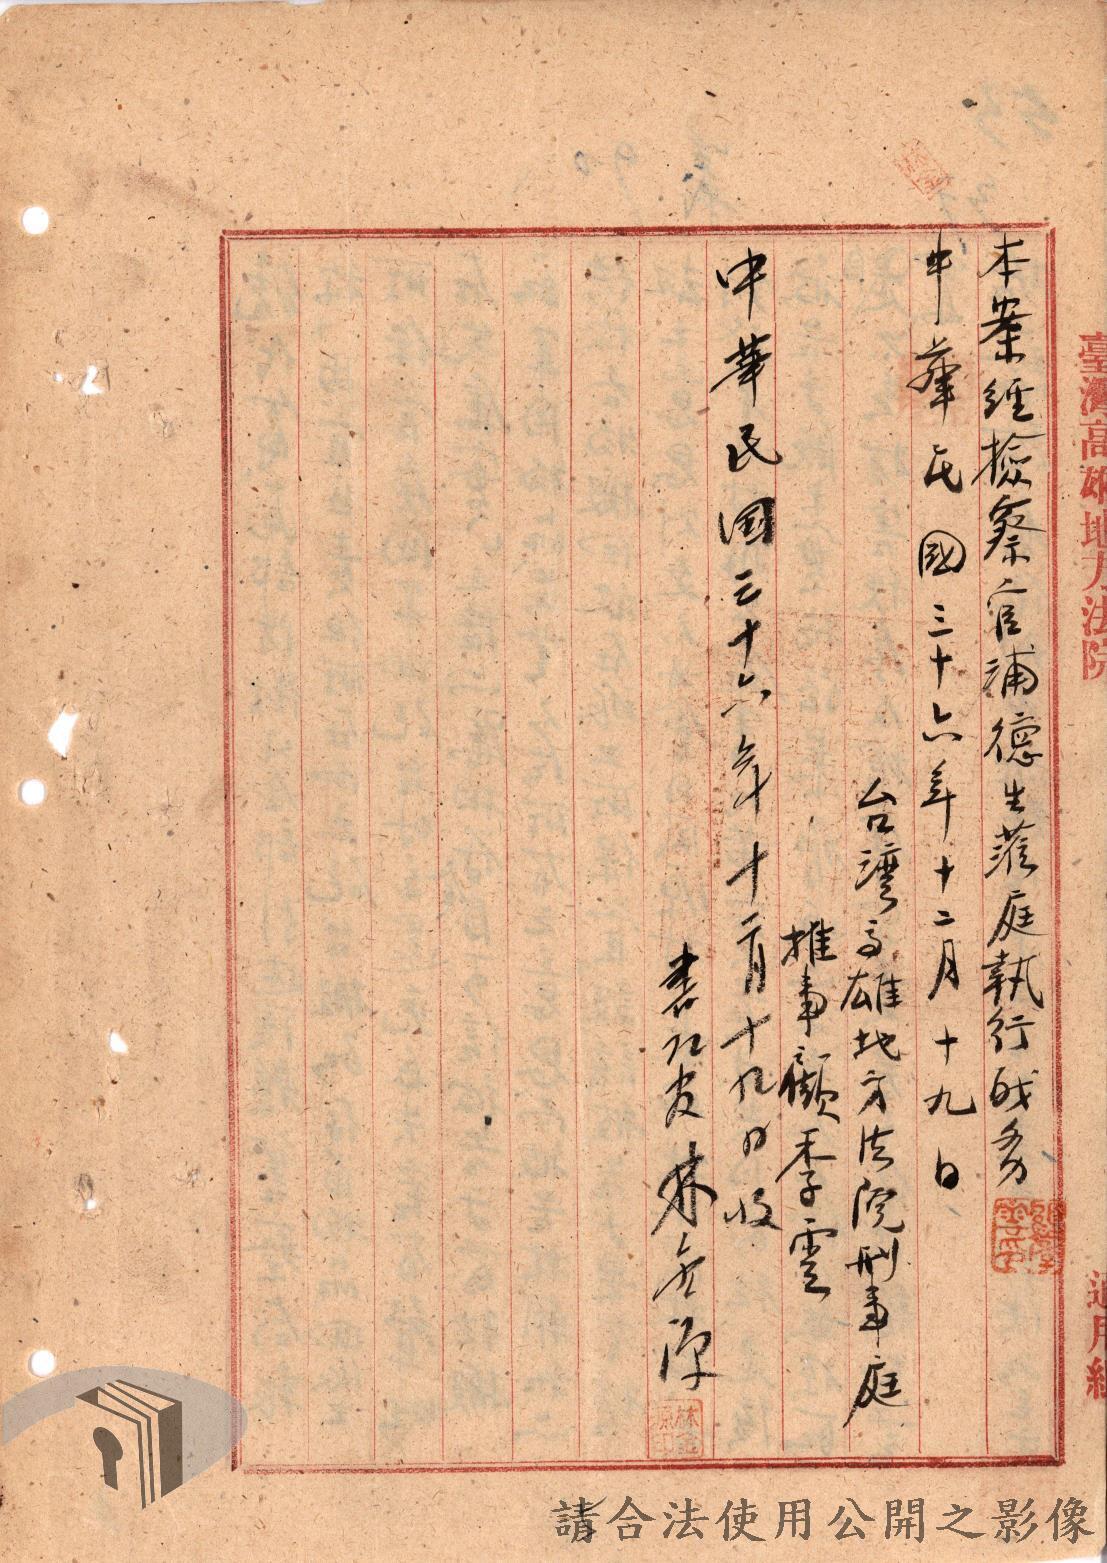 臺灣高雄地方法院
通用紙
本案經檢察官浦德生蒞庭執行職務
中華民國三十六年十二月十九日
台灣高雄地方法院刑事庭
推事顧季雲
中華民国三十六年十二月十九日收
書記官林金源
林金源印
請合法使用公開之影像